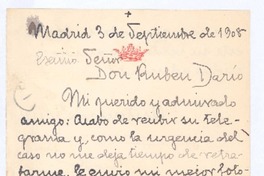 +
Madrid 3 de Septiembre de 1908
Exmo Señor
Don Ruben Darío
Mi querido y admirado
amigo: Acabo de recibir su tele-
grama y, como la urgencia del
caso no me deja tiempo de retra-
tarme, le envio mi mejor foto-